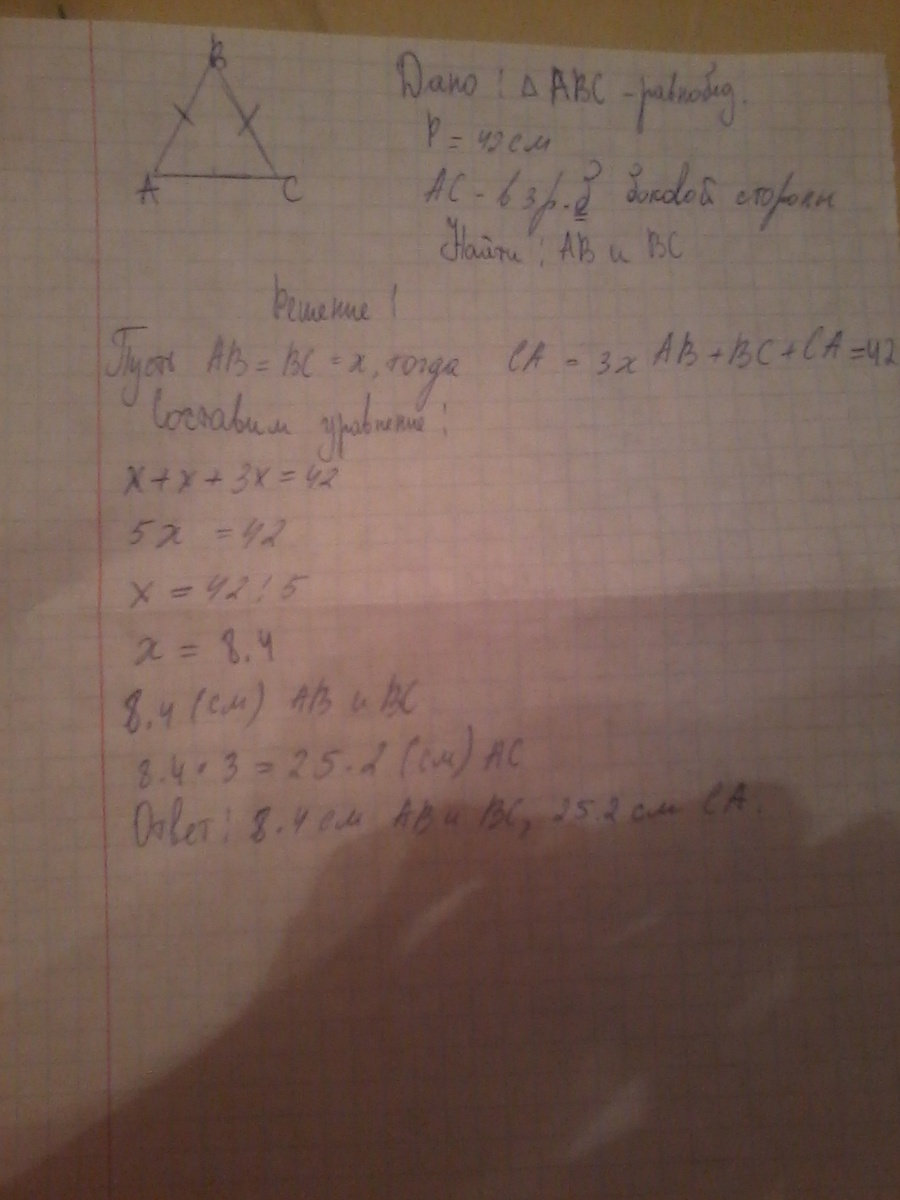 B
A
C
Дано: △ ABC - равнобед.
P = 42 см
AC - в 3 р. б боковой стороны
Найти: AB и BC
Решение:
Пусть AB = BC = x, тогда CA = 3x AB + BC + CA = 42
Составим уравнение:
x + x + 3x = 42
5x = 42
x = 42 : 5
x = 8.4
8.4 (см) AB и BC
8.4 · 3 = 25.2 (см) AC
Ответ: 8.4 см AB и BC, 25.2 см CA.